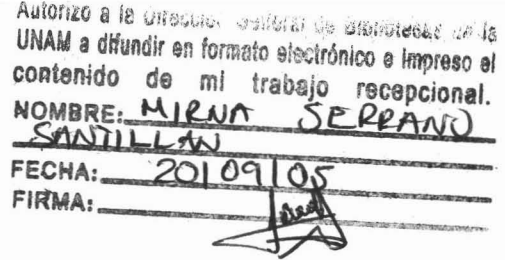 Autorizo a la Dirección General de Bibliotecas de la
UNAM a difundir en formato electrónico e impreso el
contenido de mi trabajo recepcional.
NOMBRE: MIRNA SERRANO
SANTILLAN
FECHA: 20|09|05
FIRMA: